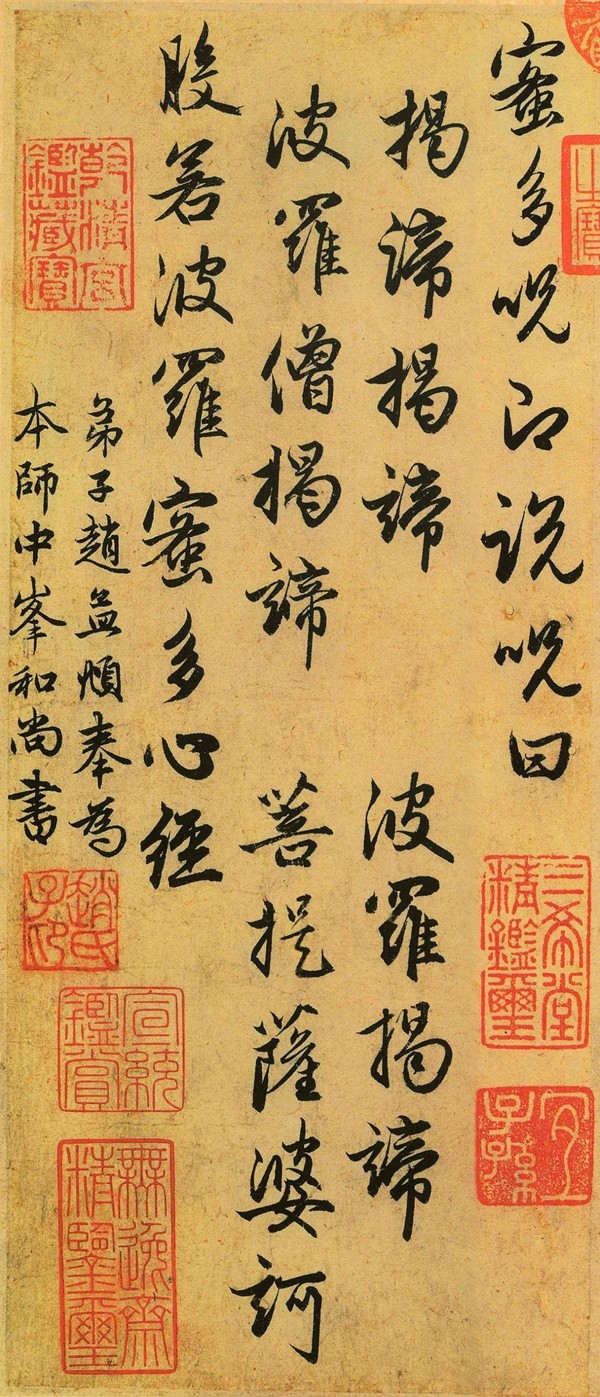 之寶
蜜多呪即説呪曰
三希堂
精鑑璽
宜
子孫
揭諦揭諦 波羅揭諦
波羅僧揭諦 菩提薩婆訶
般若波羅蜜多心經
弟子趙孟頫奉為
本師中峯和尚書
乾清宮
鑑藏寶
趙氏
子印
宣統
鑑賞
無逸齋
精鑒璽